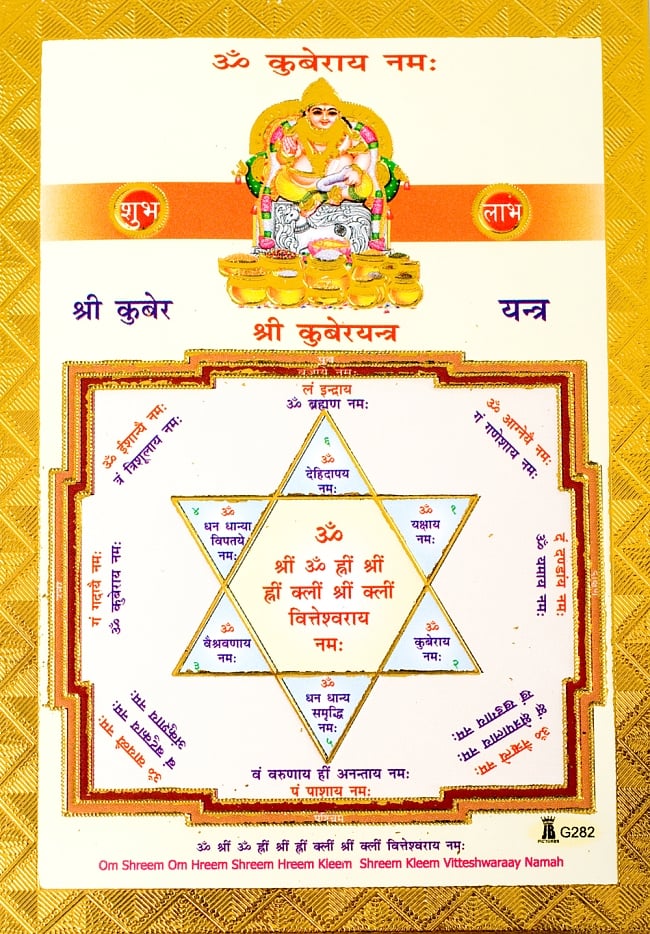 ॐ कुबेराय नमः
शुभ
लाभ
श्री कुबेर
यन्त्र
श्री कुबेरयन्त्र
लं इन्द्राय
ॐ ब्रह्मण नमः
ॐ ईशान्यै नमः
त्रं त्रिशूलाय नमः
ॐ आग्नेयै नमः
गं गणेशाय नमः
६
ॐ
देहिदापय
नमः
४
ॐ
धन धान्या
विपतये
नमः
ॐ
१
यक्षाय
नमः
ॐ
श्रीं ॐ ह्रीं श्रीं
ह्रीं क्लीं श्रीं क्लीं
वित्तेश्वराय
नमः
गं गदायै नमः
ॐ कुबेराय नमः
दं दण्डाय नमः
ॐ यमाय नमः
ॐ
वैश्रवणाय
नमः
३
ॐ
कुबेराय
नमः
२
ॐ
धन धान्य
समृद्धि
नमः
५
ॐ वायव्यै नमः
अंकुशाय नमः
खं खड्गाय नमः
वं वरुणाय हीं अनन्ताय नमः
पं पाशाय नमः
पश्चिम
JB
PICTURES
G282
ॐ श्रीं ॐ ह्रीं श्रीं ह्रीं क्लीं श्रीं क्लीं वित्तेश्वराय नमः
Om Shreem Om Hreem Shreem Hreem Kleem Shreem Kleem Vitteshwaraay Namah